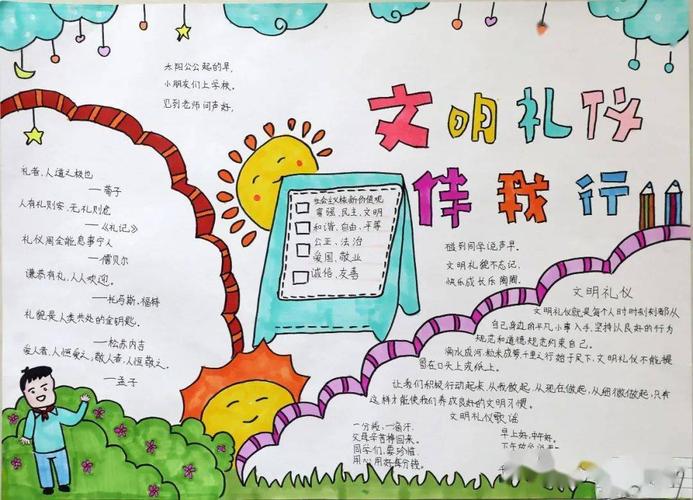 太阳公公起的早,
小朋友们上学校。
见到老师问声好,
文明礼仪
伴我行
礼者,人道之极也
——荀子
人有礼则安,无礼则危
——《礼记》
礼仪周全能息事宁人
——儒贝尔
谦恭有礼,人人欢迎。
——托与斯·福特
礼貌是人类共处的金钥匙。
——松苏内吉
爱人者,人恒爱之,敬人者,人恒敬之。
——孟子
社会主义核心价值观
富强、民主、文明
和谐、自由、平等
公正、法治
爱国、敬业
诚信、友善
碰到同学说声早。
文明礼貌不忘记,
快乐成长乐陶陶。
文明礼仪
文明礼仪就是每个人时时刻刻都从
自己身边的平凡小事入手,坚持以良好的行为
规范和道德规范约束自己。
滴水成河,粒米成箩,千里之行始于足下。文明礼仪不能撂
留在口头上或纸上。
让我们积极行动起来,从我做起,从现在做起,从细微做起,只有
这样才能使我们养成良好的文明习惯。
文明礼仪歌谣
一分钱,一滴汗,
父母辛苦挣回来。
同学们,要珍惜,
用心用好每分钱。
早上好,中午好,